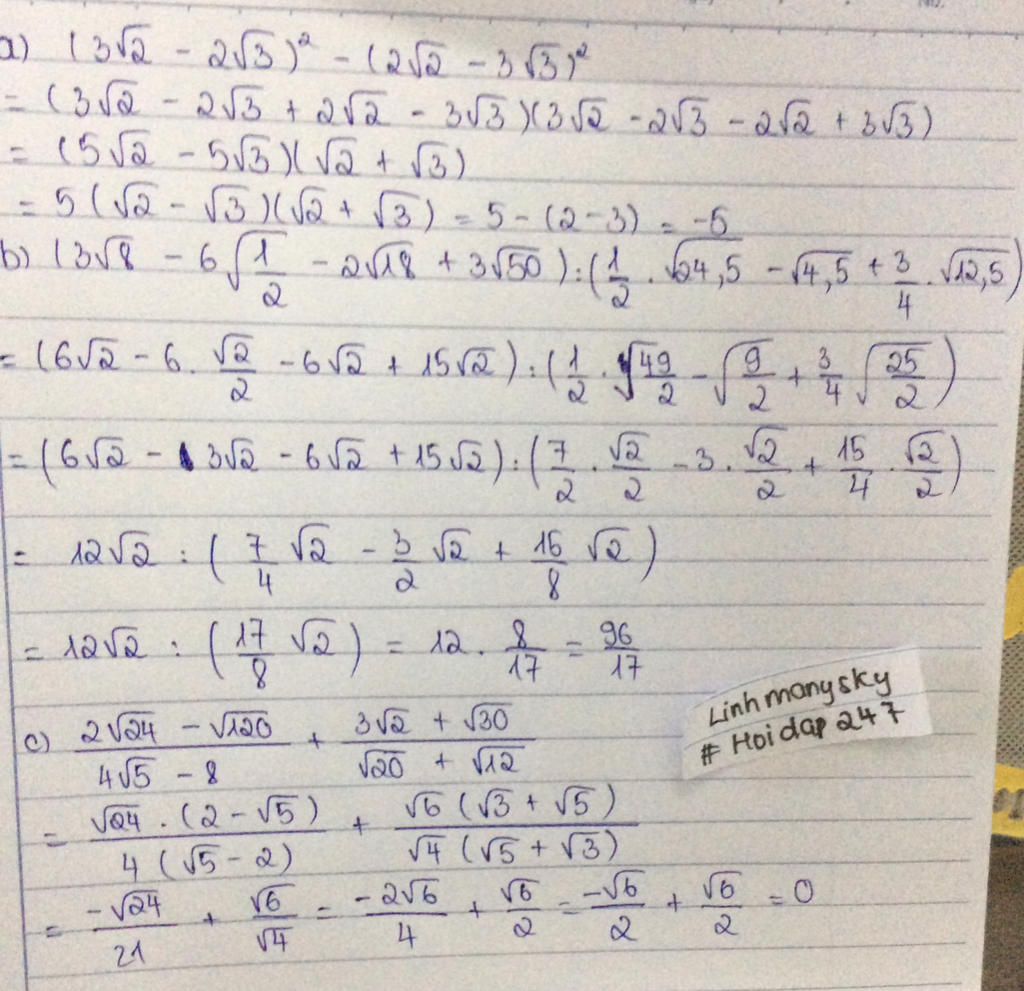 a) (3√2 - 2√3)² - (2√2 - 3√3)²
= (3√2 - 2√3 + 2√2 - 3√3)(3√2 - 2√3 - 2√2 + 3√3)
= (5√2 - 5√3)(√2 + √3)
= 5(√2 - √3)(√2 + √3) = 5 - (2 - 3) = -5
b) (3√8 - 6√(1/2) - 2√18 + 3√50) : (1/2 . √24,5 - √4,5 + 3/4 . √12,5)
= (6√2 - 6. √2/2 - 6√2 + 15√2) : (1/2 . √(49/2) - √(9/2) + 3/4 √(25/2))
= (6√2 - 3√2 - 6√2 + 15√2) : (7/2 . √2/2 - 3 . √2/2 + 15/4 . √2/2)
= 12√2 : (7/4 √2 - 3/2 √2 + 15/8 √2)
= 12√2 : (17/8 √2) = 12 . 8/17 = 96/17
Linhmanysky
# Hoidap 247
c) (2√24 - √120)/(4√5 - 8) + (3√2 + √30)/(√20 + √12)
= (√24 . (2 - √5))/(4(√5 - 2)) + (√6(√3 + √5))/(√4(√5 + √3))
= -√24/21 + √6/√4 = -2√6/4 + √6/2 = -√6/2 + √6/2 = 0